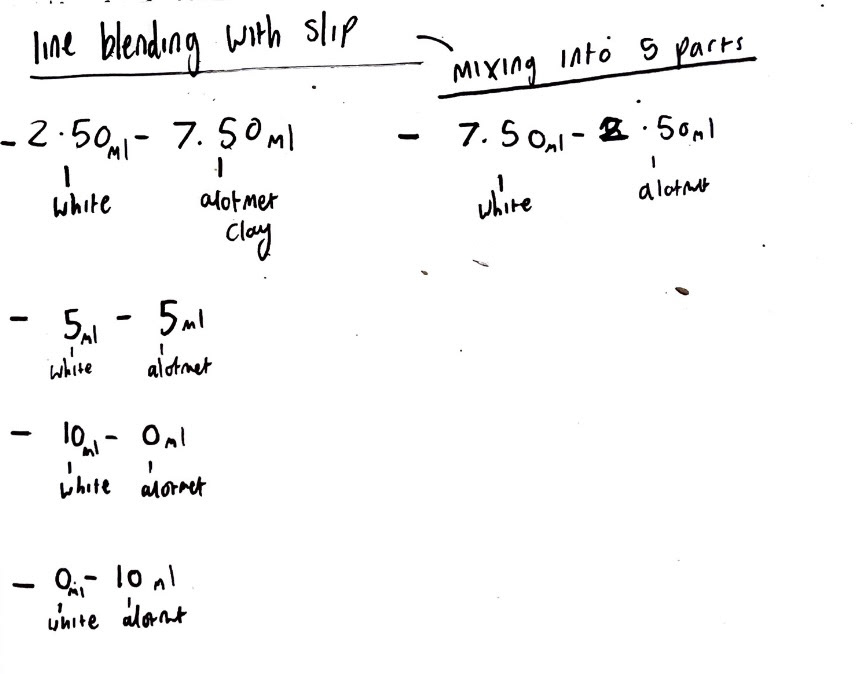 line blending with slip
mixing into 5 parts
- 2.50ml - 7.50ml
white alotmet
clay
- 7.50ml - 2.50ml
white alotmet
- 5ml - 5ml
white alotmet
- 10ml - 0ml
white alotmet
- 0ml - 10ml
white alotmet